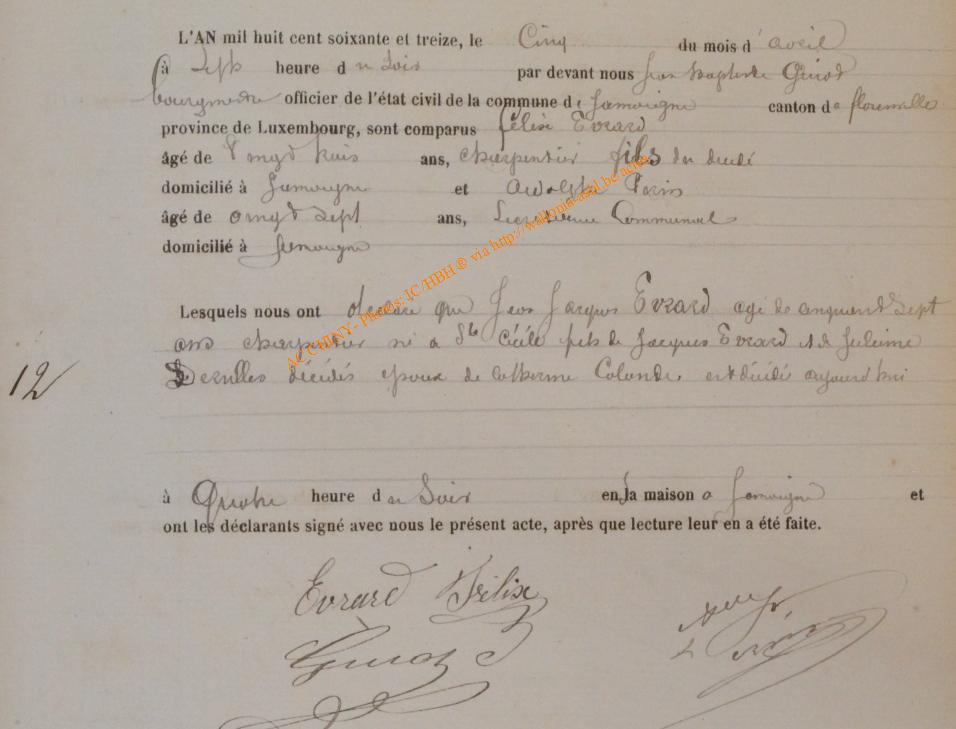 L'AN mil huit cent soixante et treize, le Cinq du mois d'avril
à Sept heure d u Soir par devant nous Jean Baptiste Guiot
bourgmestre officier de l'état civil de la commune de Jamoigne canton de florenville
province de Luxembourg, sont comparus félix Evrard
âgé de Vingt huit ans, charpentier fils du décédé
domicilié à Jamoigne et Adolphe
âgé de sept ans, Secrétaire Communal
domicilié à Jamoigne
Lesquels nous ont déclaré que Jean Jacques Evrard agé de cinquante Sept
ans charpentier né a Ste Cécile fils de Jacques Evrard et de
décédés époux de Catherine est décédé aujourd'hui
12
à Quatre heure d u Soir en sa maison a Jamoigne et
ont les déclarants signé avec nous le présent acte, après que lecture leur en a été faite.
Evrard Félix
Guiot
ACCHINY - Photos: IC/HBH ® via http://wallonia-asbl.be actes